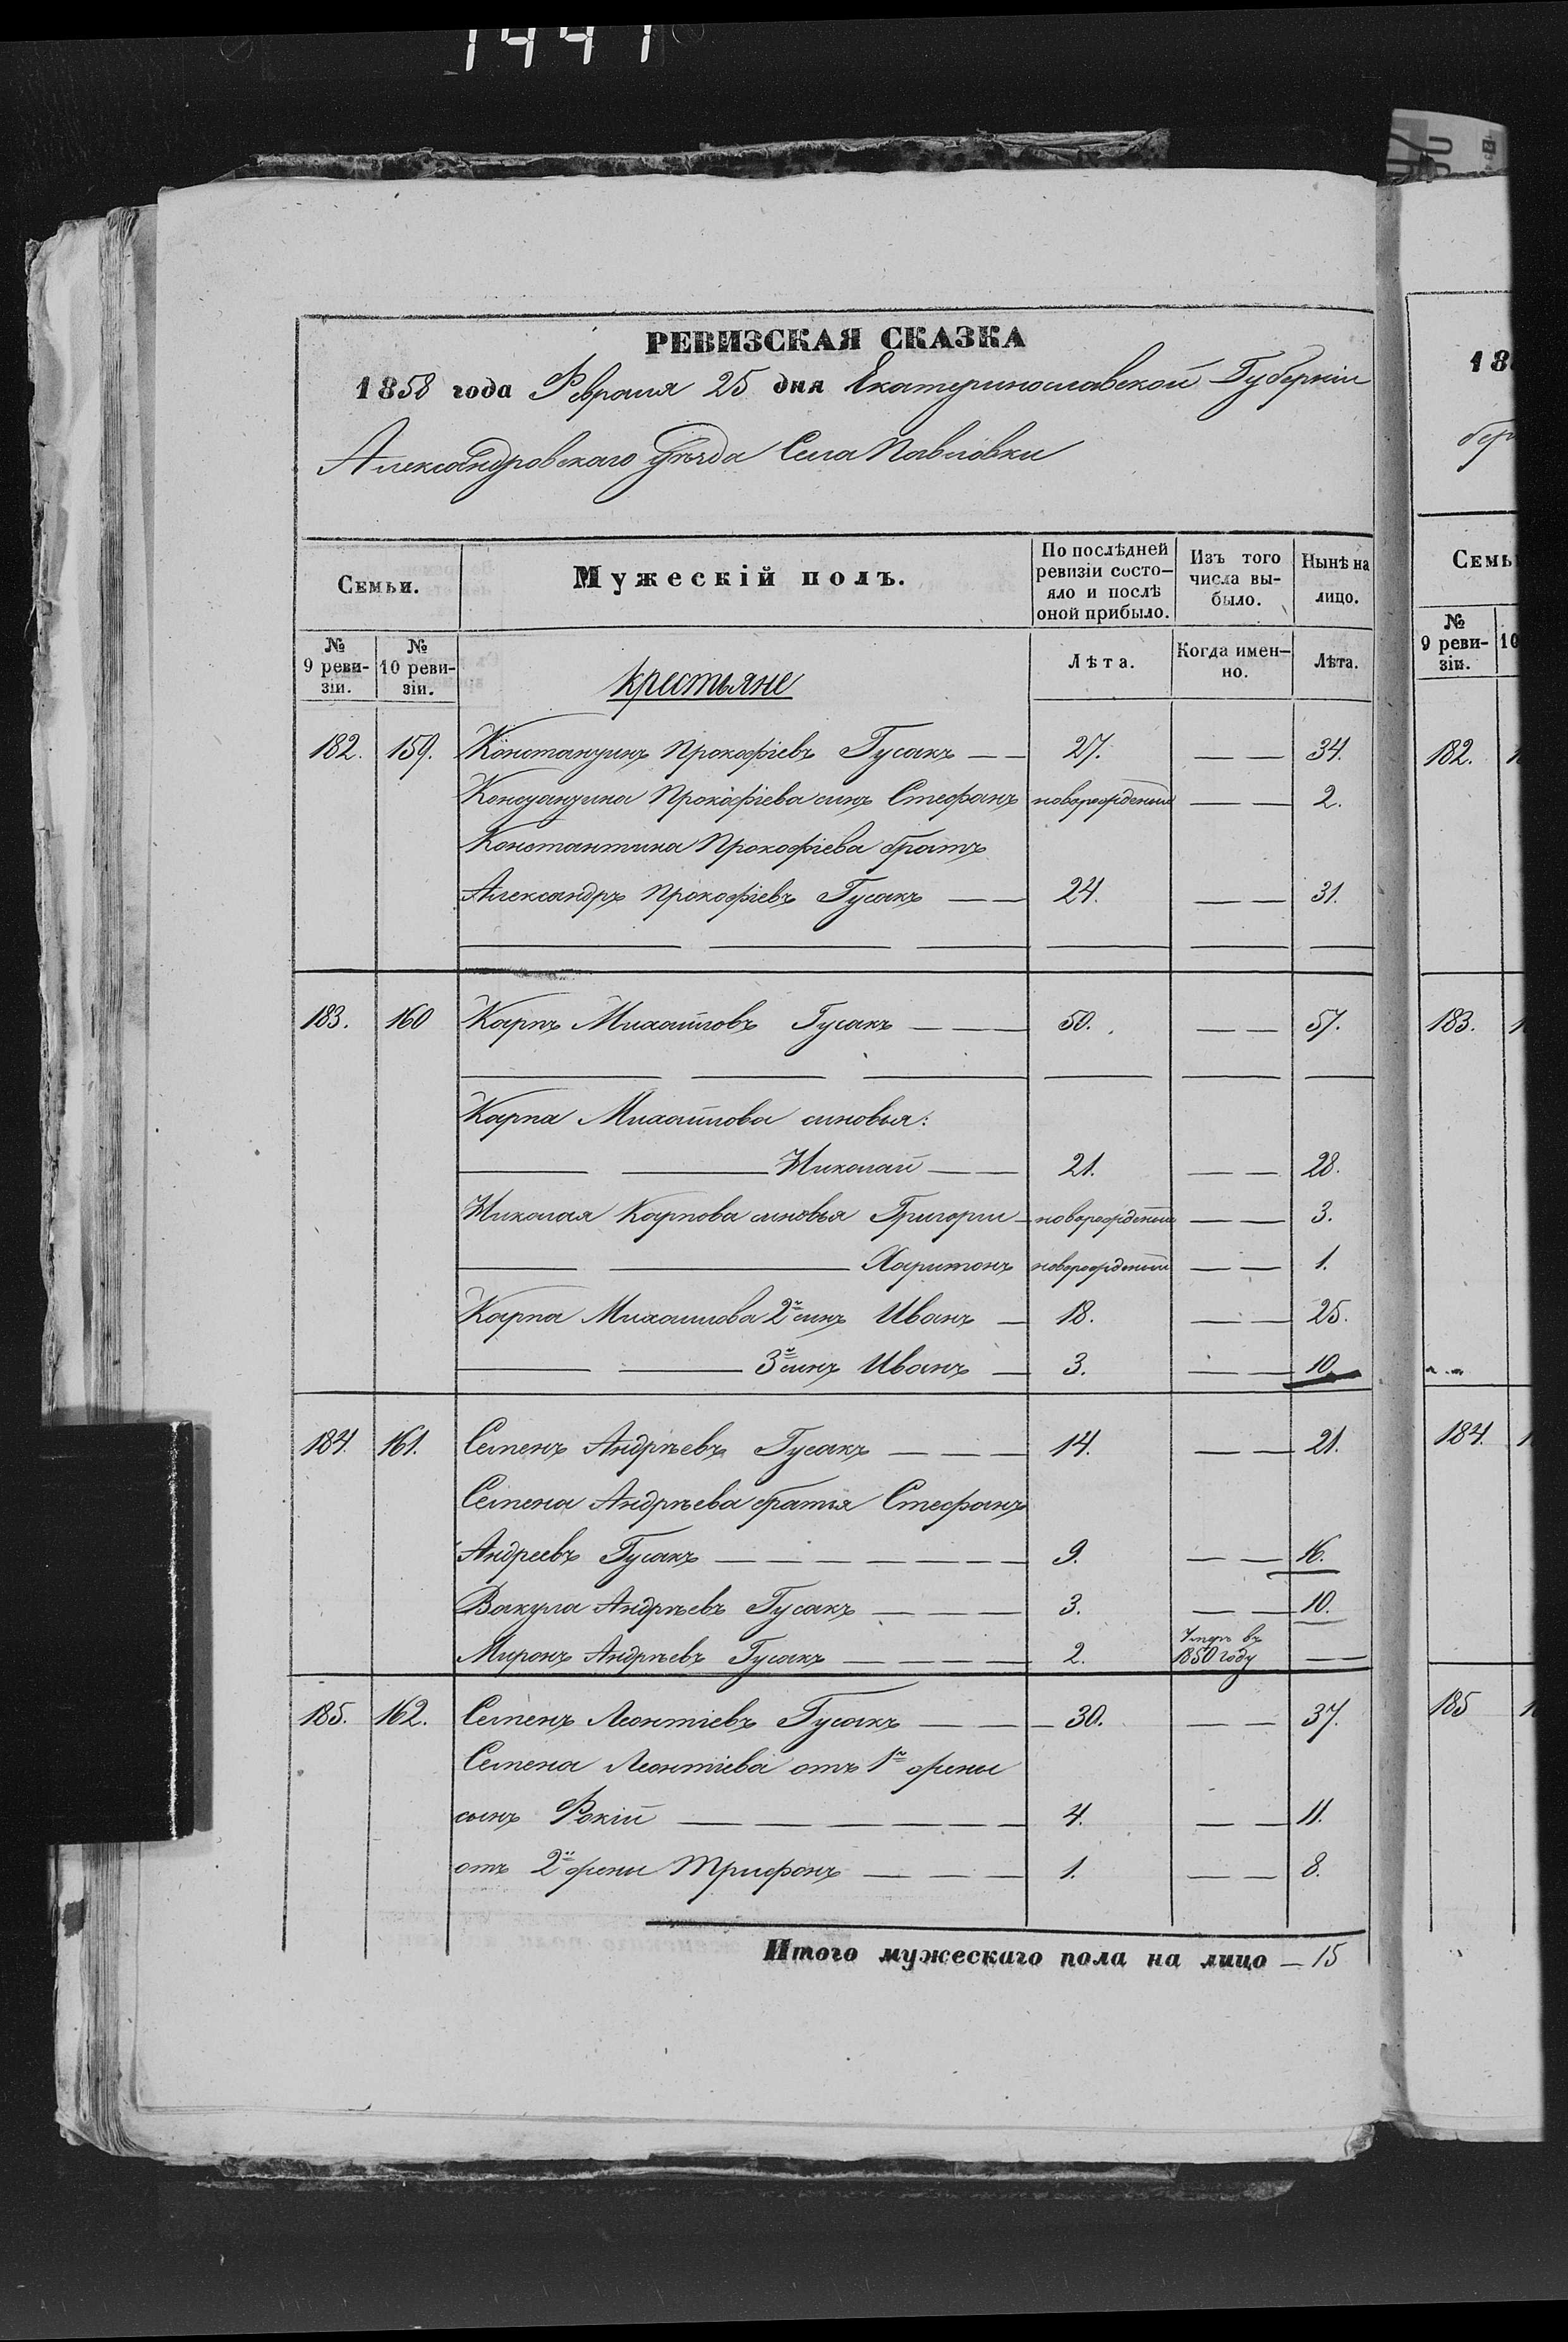 1441
РЕВИЗСКАЯ СКАЗКА
1858 года Февраля 25 дня Екатеринославской Губерніи
Александровскаго Уѣзда Села Павловки
Семьи.
Мужескій полъ.
По послѣдней ревизіи состо-яло и послѣ оной прибыло.
Изъ того числа вы-было.
Нынѣ на лицо.
№ 9 реви-зіи.
№ 10 реви-зіи.
крестьяне
Лѣта.
Когда имен-но.
Лѣта.
182. 159. Константинъ Прокофіевъ Гусакъ — — 27. — — 34.
Константина Прокофіева синъ Стефанъ новорожденный — — 2.
Константина Прокофіева братъ
Александръ Прокофіевъ Гусакъ — — 24. — — 31.
183. 160 Карпъ Михайловъ Гусакъ — — 50. — — 57.
Карпа Михайлова синовья:
Николай — — 21. — — 28.
Николая Карпова синовья Григорій новорожденный — — 3.
Харитонъ новорожденный — — 1.
Карпа Михайлова 2й синъ Иванъ — 18. — — 25.
3й синъ Иванъ — 3. — — 10.
184. 161. Семенъ Андрѣевъ Гусакъ — — — 14. — — 21.
Семена Андрѣева братья Стефанъ
Андреевъ Гусакъ — — — — — — — 9. — — 16.
Вакула Андрѣевъ Гусакъ — — — 3. — — 10.
Миронъ Андрѣевъ Гусакъ — — — — 2. Умеръ въ 1850 году — —
185. 162. Семенъ Леонтіевъ Гусакъ — — 30. — — 37.
Семена Леонтіева отъ 1й жены
сынъ Фокій — — — — — — — 4. — — 11.
отъ 2й жены Трифонъ — — — 1. — — 8.
Итого мужескаго пола на лицо — 15
18
Семь
№ 9 реви-зіи.
10
182.
183.
184.
185